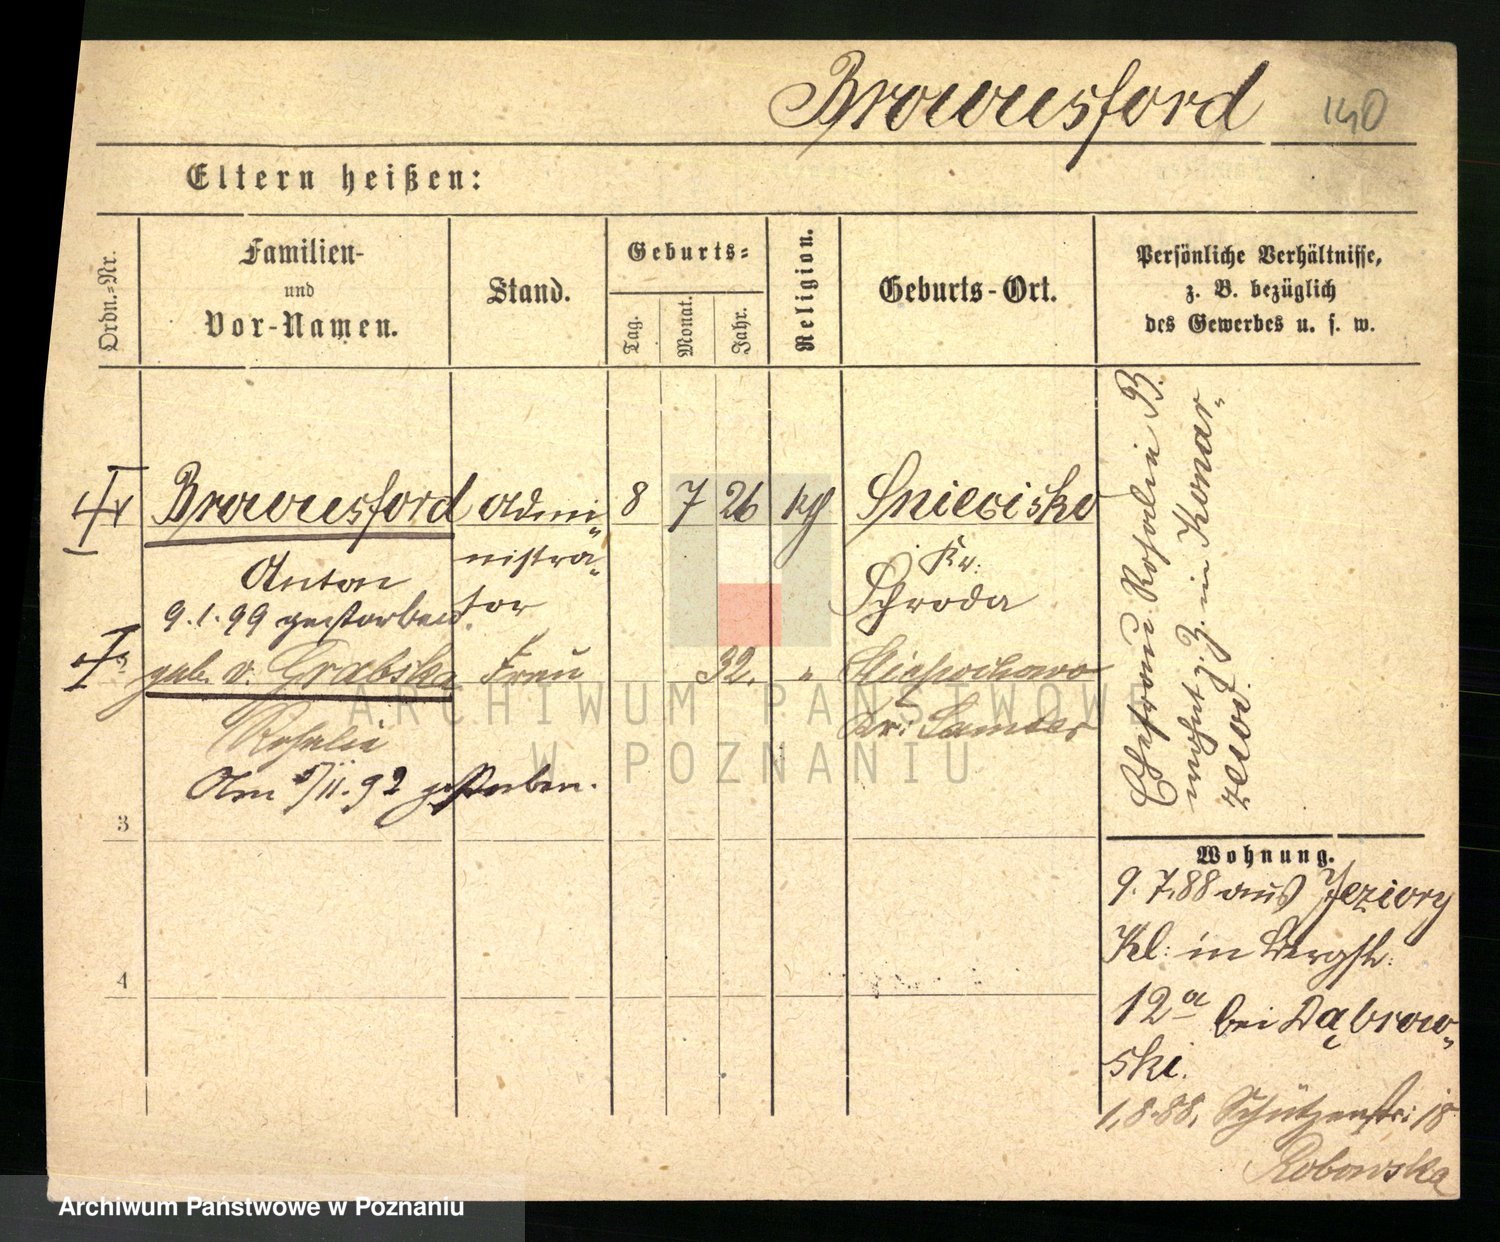 Brownsford 140
Eltern heißen:
Ordn.-Nr.
Familien-
und
Vor-Namen.
Stand.
Geburts-
Tag.
Monat.
Jahr.
Religion.
Geburts-Ort.
Persönliche Verhältnisse,
z. B. bezüglich
des Gewerbes u. s. w.
Brownsford Admi- 8 7 26 kg Sniecisko
nistra- Kr:
Anton tor Schroda
9.1.99 gestorben.
geb. v. Grabska Frau 32. "
Rosalie Kr: Samter
Am 5/11.92 gestorben.
3
4
Ehefrau Rosalie B.
wohnt z. Z. in Konar-
zewo.
Wohnung.
9.7.88 aus Jeziory
Kl: in Bergstr:
12a bei Dąbrow-
ski.
1.8.88. Schützenstr: 18
Robowska
ARCHIWUM PAŃSTWOWE
W POZNANIU
Archiwum Państwowe w Poznaniu